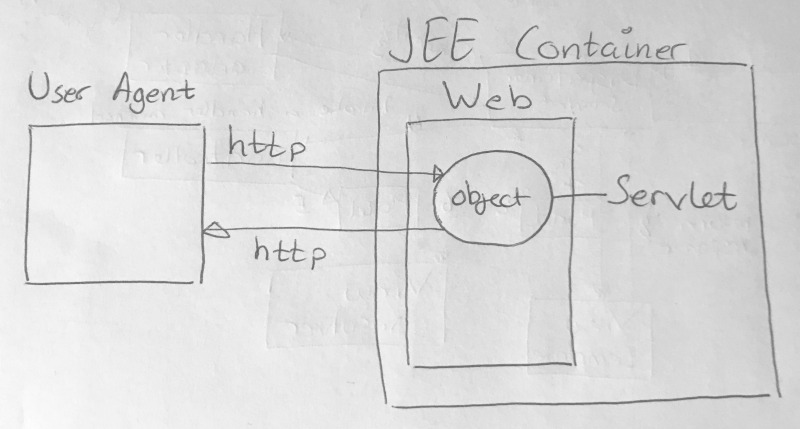 JEE Container
User Agent
Web
http
object
Servlet
http